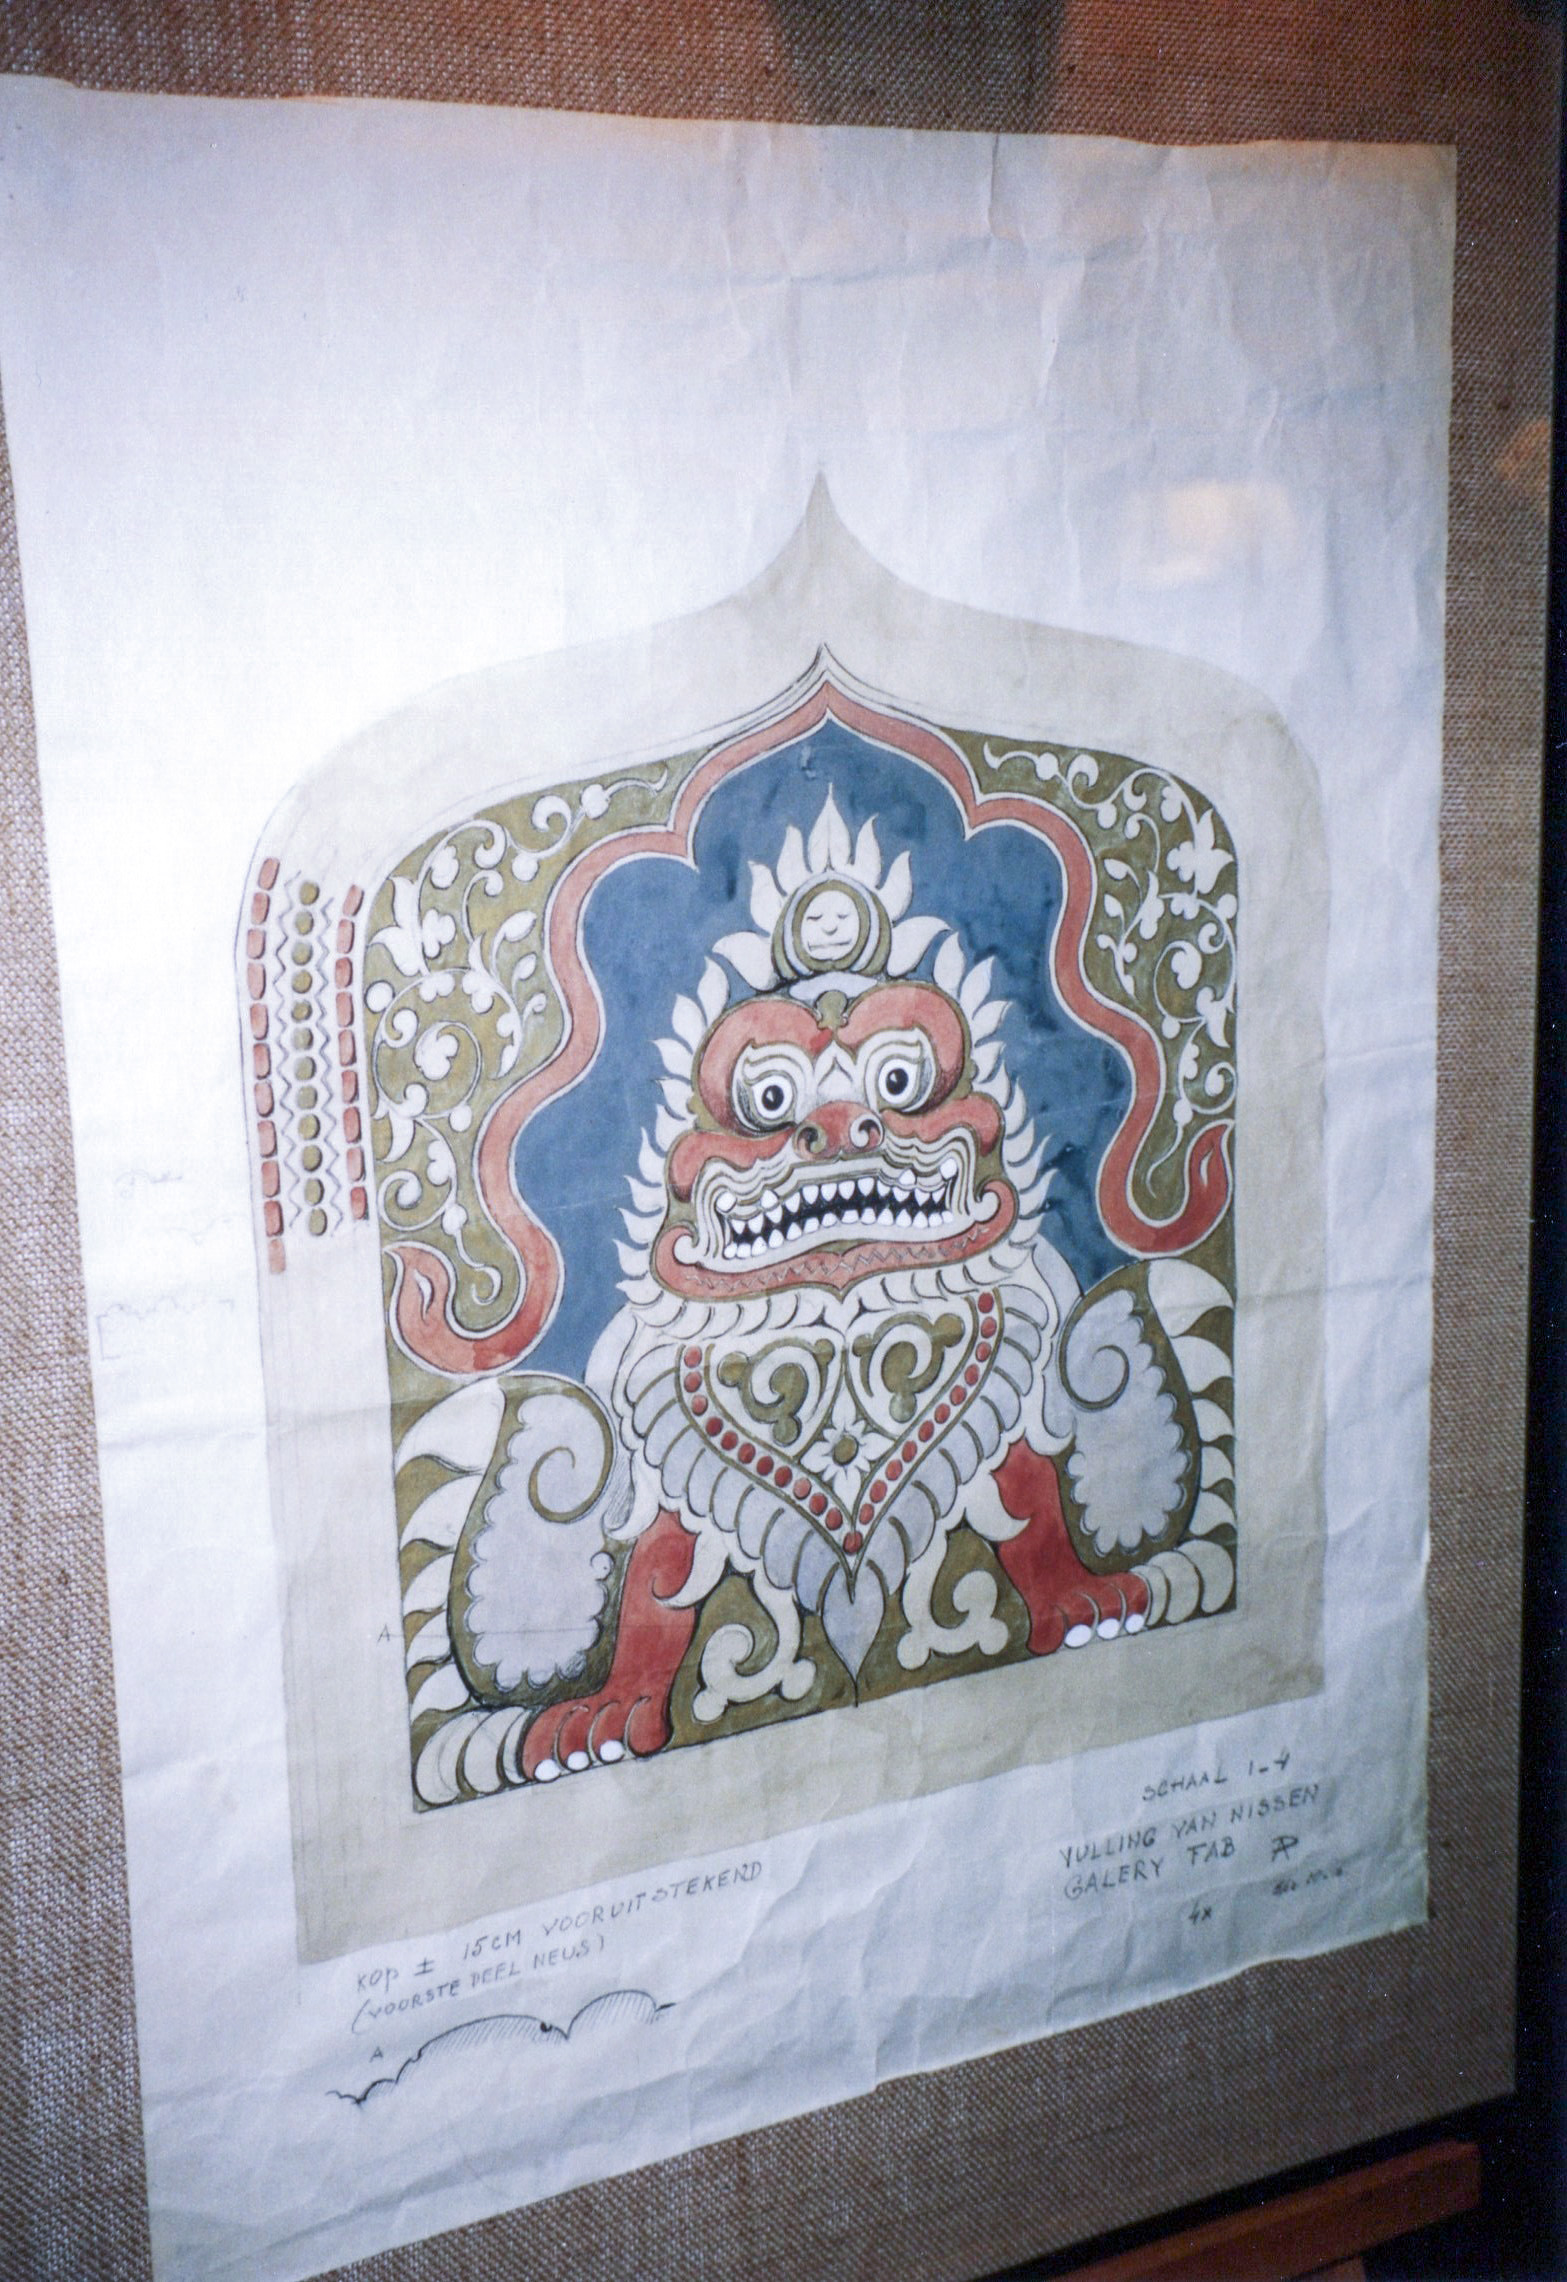 A
SCHAAL 1-4
VULLING VAN NISSEN
GALERY FAB AP
4x
KOP ± 15 CM VOORUITSTEKEND
(VOORSTE DEEL NEUS)
A